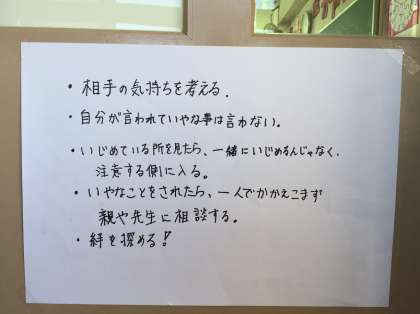 ・相手の気持ちを考える.
・自分が言われていやな事は言わない。
・いじめている所を見たら、一緒にいじめるんじゃなく、
注意する側に入る。
・いやなことをされたら、一人でかかえこまず
親や先生に相談する。
・絆を深める!